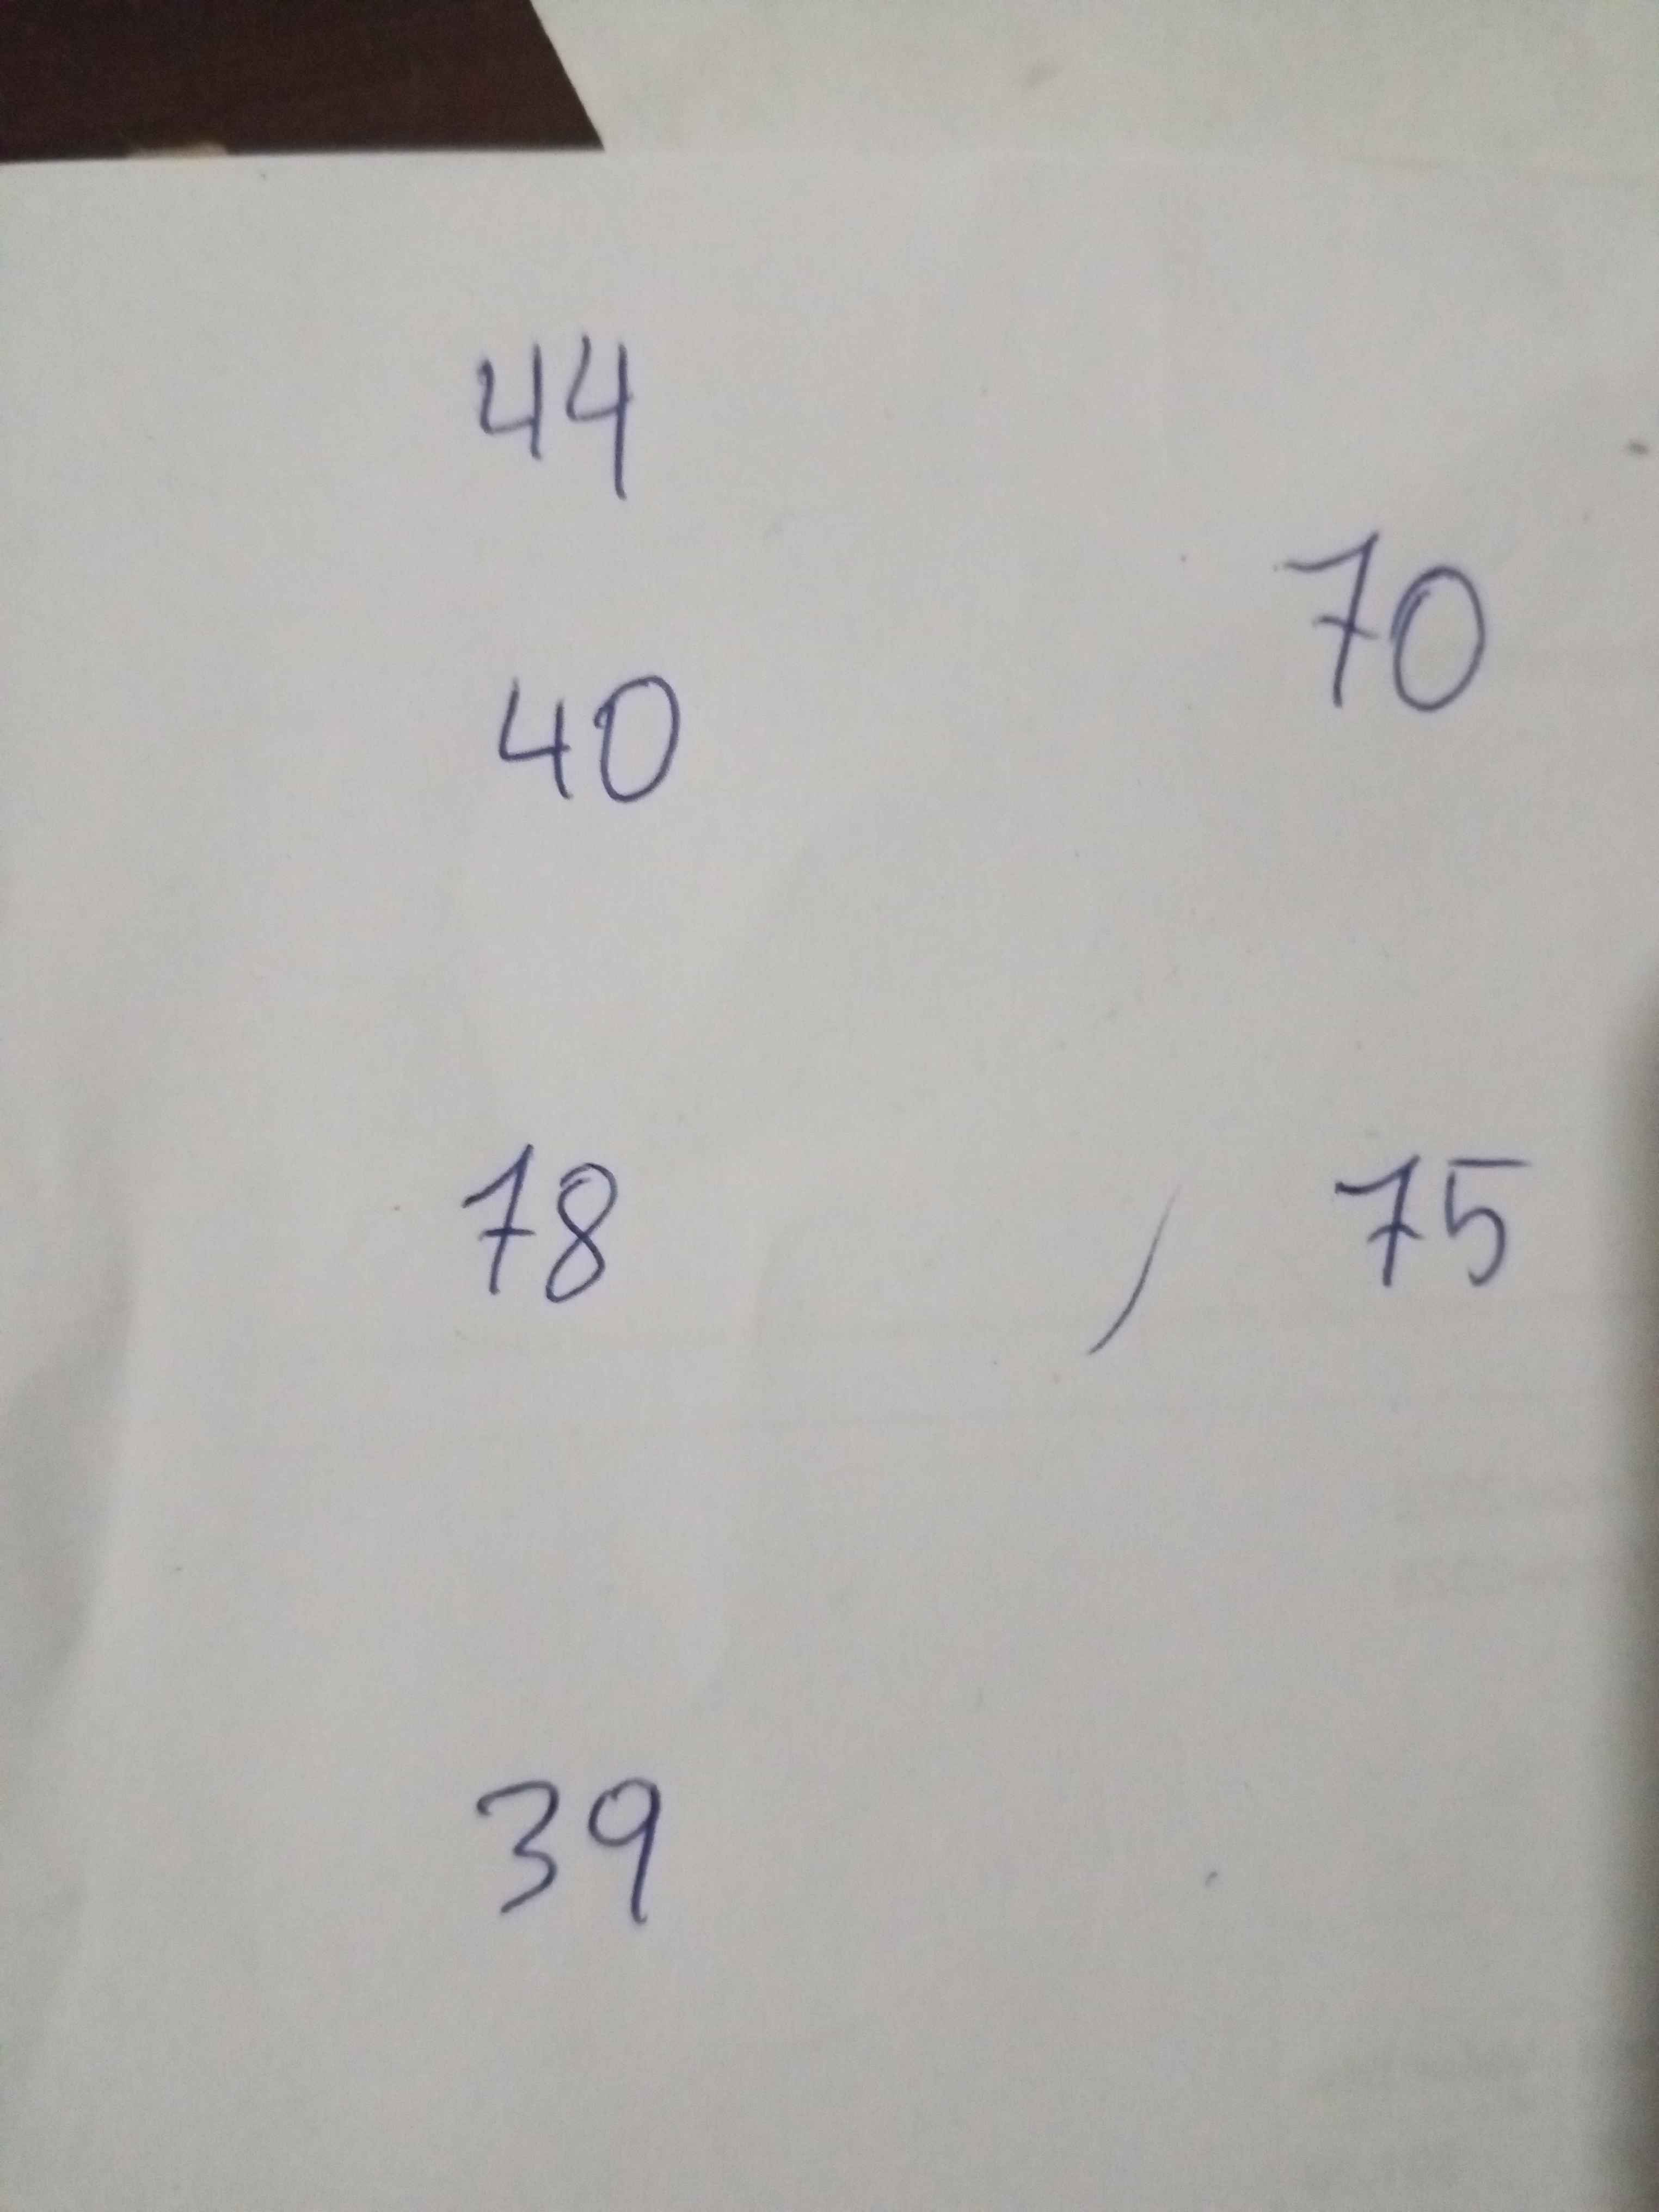 44
70
40
78
75
39